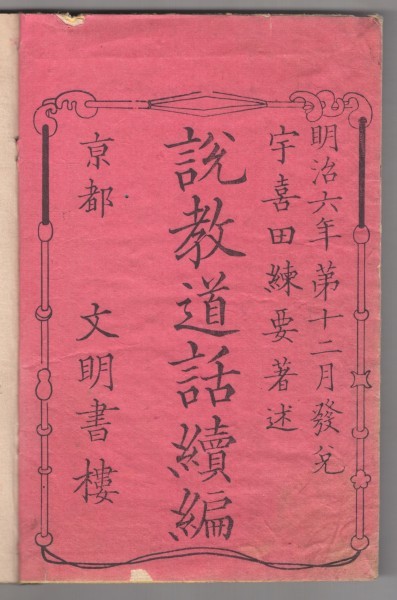 明治六年第十二月發兌
宇喜田練要著述
說教道話續編
京都 文明書樓